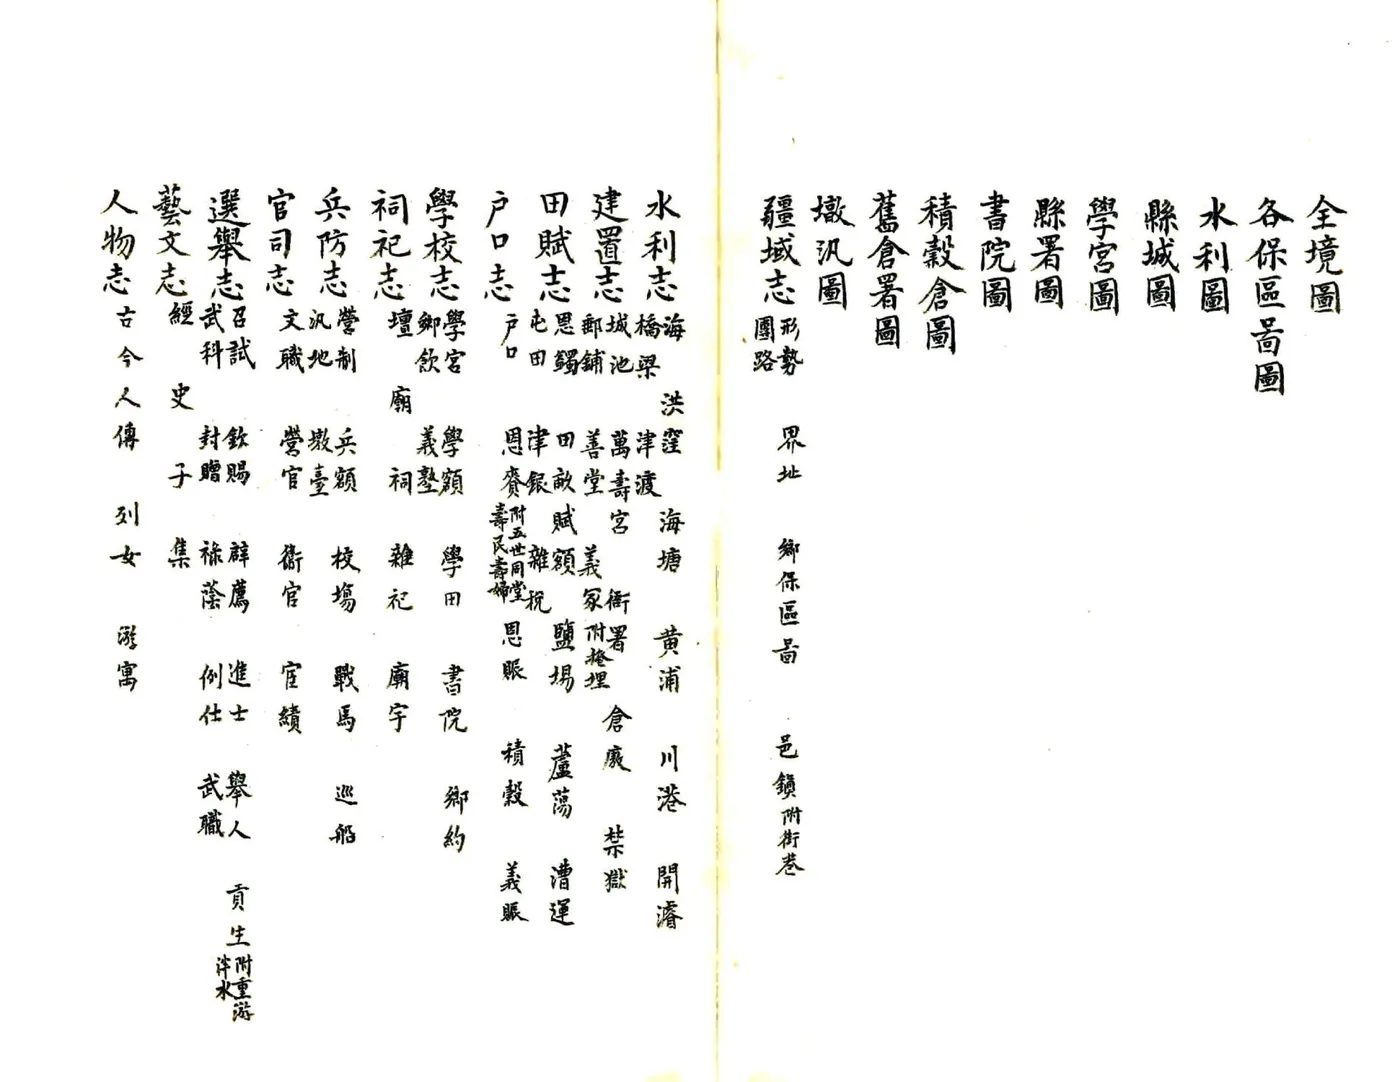 全境圖
各保區啚圖
水利圖
縣城圖
學宮圖
縣署圖
書院圖
積穀倉圖
舊倉署圖
墩汛圖
疆域志 形勢 界址 鄉保區啚 邑鎮附街巷
團路
水利志 海洪窪 海塘 黄浦 川港 開濬
橋梁 津渡
建置志 城池 萬壽宮 衙署 倉廒 禁獄
郵鋪 善堂 義冢附掩埋
田賦志 恩蠲 田畝賦額 鹽場 蘆蕩 漕運
屯田 津銀 雜稅
户口志 户口 恩賚附五世同堂壽民壽婦 恩賑 積穀 義賑
學校志 學宮 學額 學田 書院 鄉約
鄉飲 義塾
祠祀志 壇 廟 祠 雜祀 廟宇
兵防志 營制 兵額 校塲 戰馬 巡船
汛地 墩臺
官司志 文職 營官 衞官 宦績
選舉志 召試 欽賜 辟薦 進士 舉人 貢生附重游泮水
武科 封贈 祿蔭 例仕 武職
藝文志 經 史 子 集
人物志 古今人傳 列女 游寓